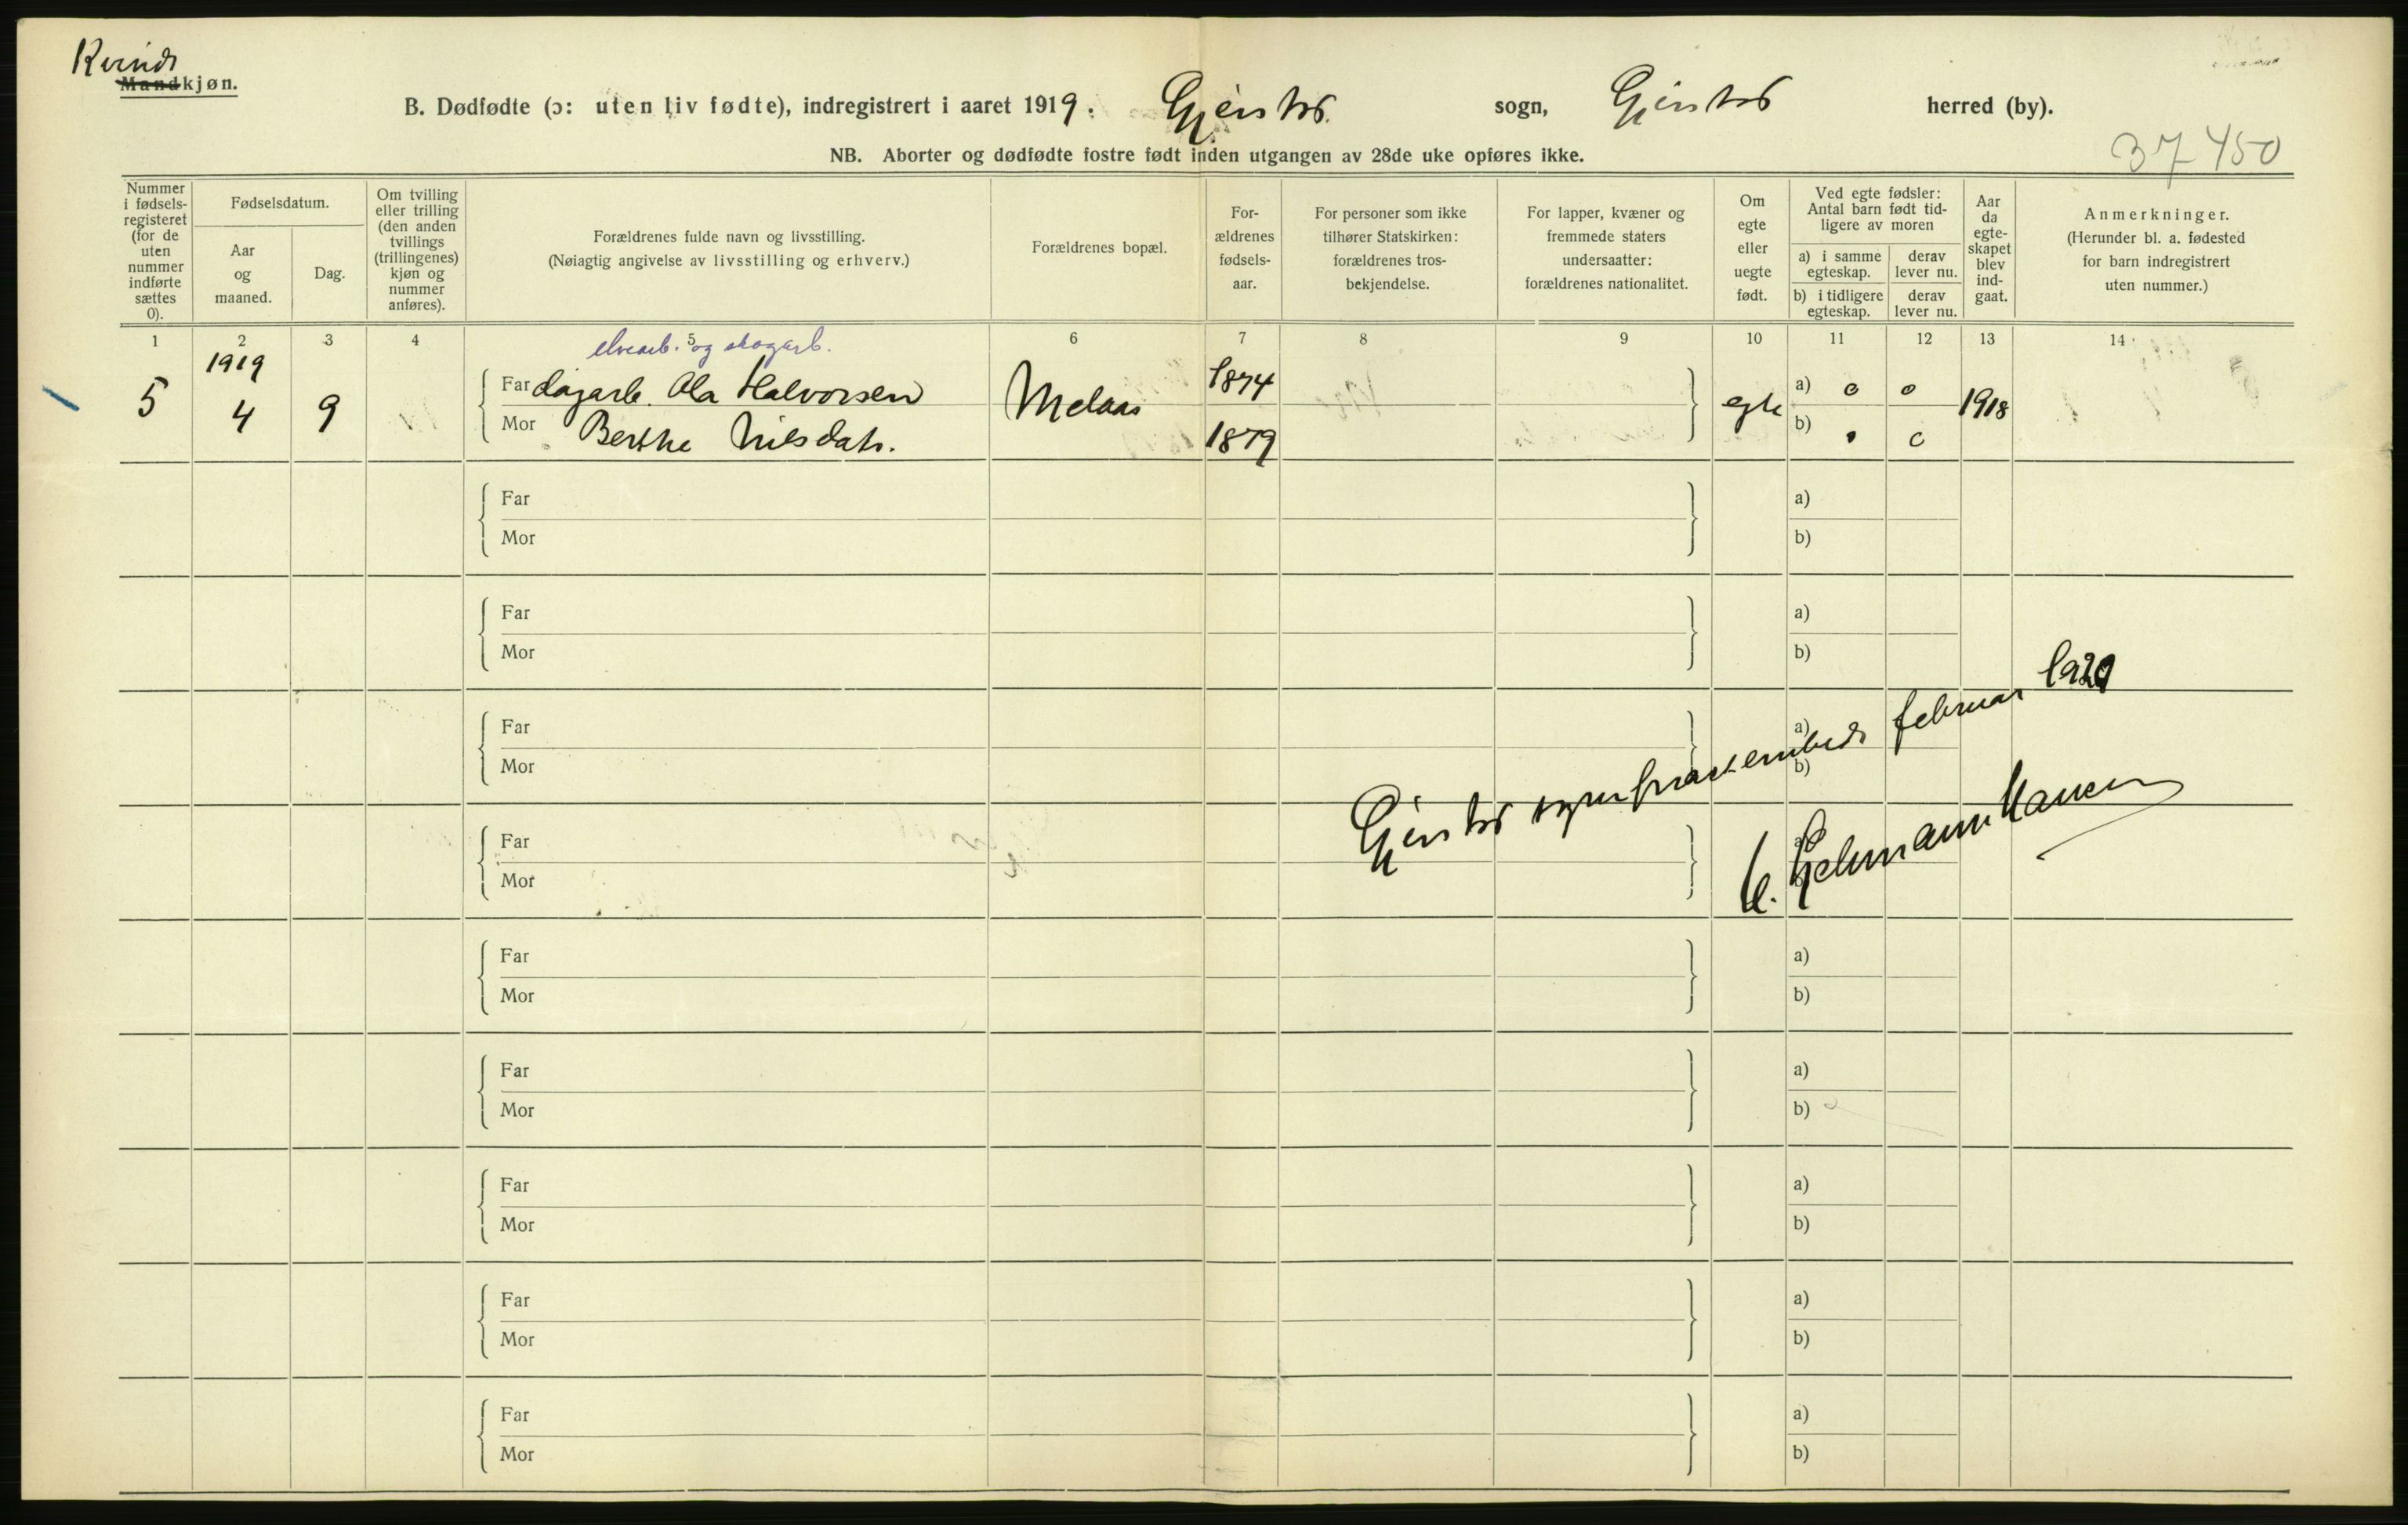 Kvinde
Mandkjøn.
B. Dødfødte (ɔ: uten liv fødte), indregistrert i aaret 1919. Gjerstad sogn, Gjerstad herred (by).
NB. Aborter og dødfødte fostre født inden utgangen av 28de uke opføres ikke.
37 450
Nummer i fødselsregisteret (for de uten nummer indførte sættes 0).
Fødselsdatum.
Aar og maaned.
Dag.
Om tvilling eller trilling (den anden tvillings (trillingenes) kjøn og nummer anføres).
Forældrenes fulde navn og livsstilling.
(Nøiagtig angivelse av livsstilling og erhverv.)
Forældrenes bopæl.
Forældrenes fødselsaar.
For personer som ikke tilhører Statskirken: forældrenes trosbekjendelse.
For lapper, kvæner og fremmede staters undersaatter: forældrenes nationalitet.
Om egte eller uegte født.
Ved egte fødsler: Antal barn født tidligere av moren
a) i samme egteskap.
derav lever nu.
b) i tidligere egteskap.
derav lever nu.
Aar da egteskapet blev indgaat.
Anmerkninger.
(Herunder bl. a. fødested for barn indregistrert uten nummer.)
1 2 3 4 5 6 7 8 9 10 11 12 13 14
elvearb. og skogarb.
1919
5 4 9
Far dagarb. Ola Halvorsen Melaas 1874 egte a) 0 0 1918
Mor Berthe Nilsdatr. 1879 b) 0 0
Far a)
Mor b)
Far a)
Mor b)
Far a)
Mor b)
Far a)
Mor b)
Gjerstad sogneprestembede februar 1920
Far a)
Mor b)
Far a)
Mor b)
Far a)
Mor b)
Far a)
Mor b)
Far a)
Mor b)